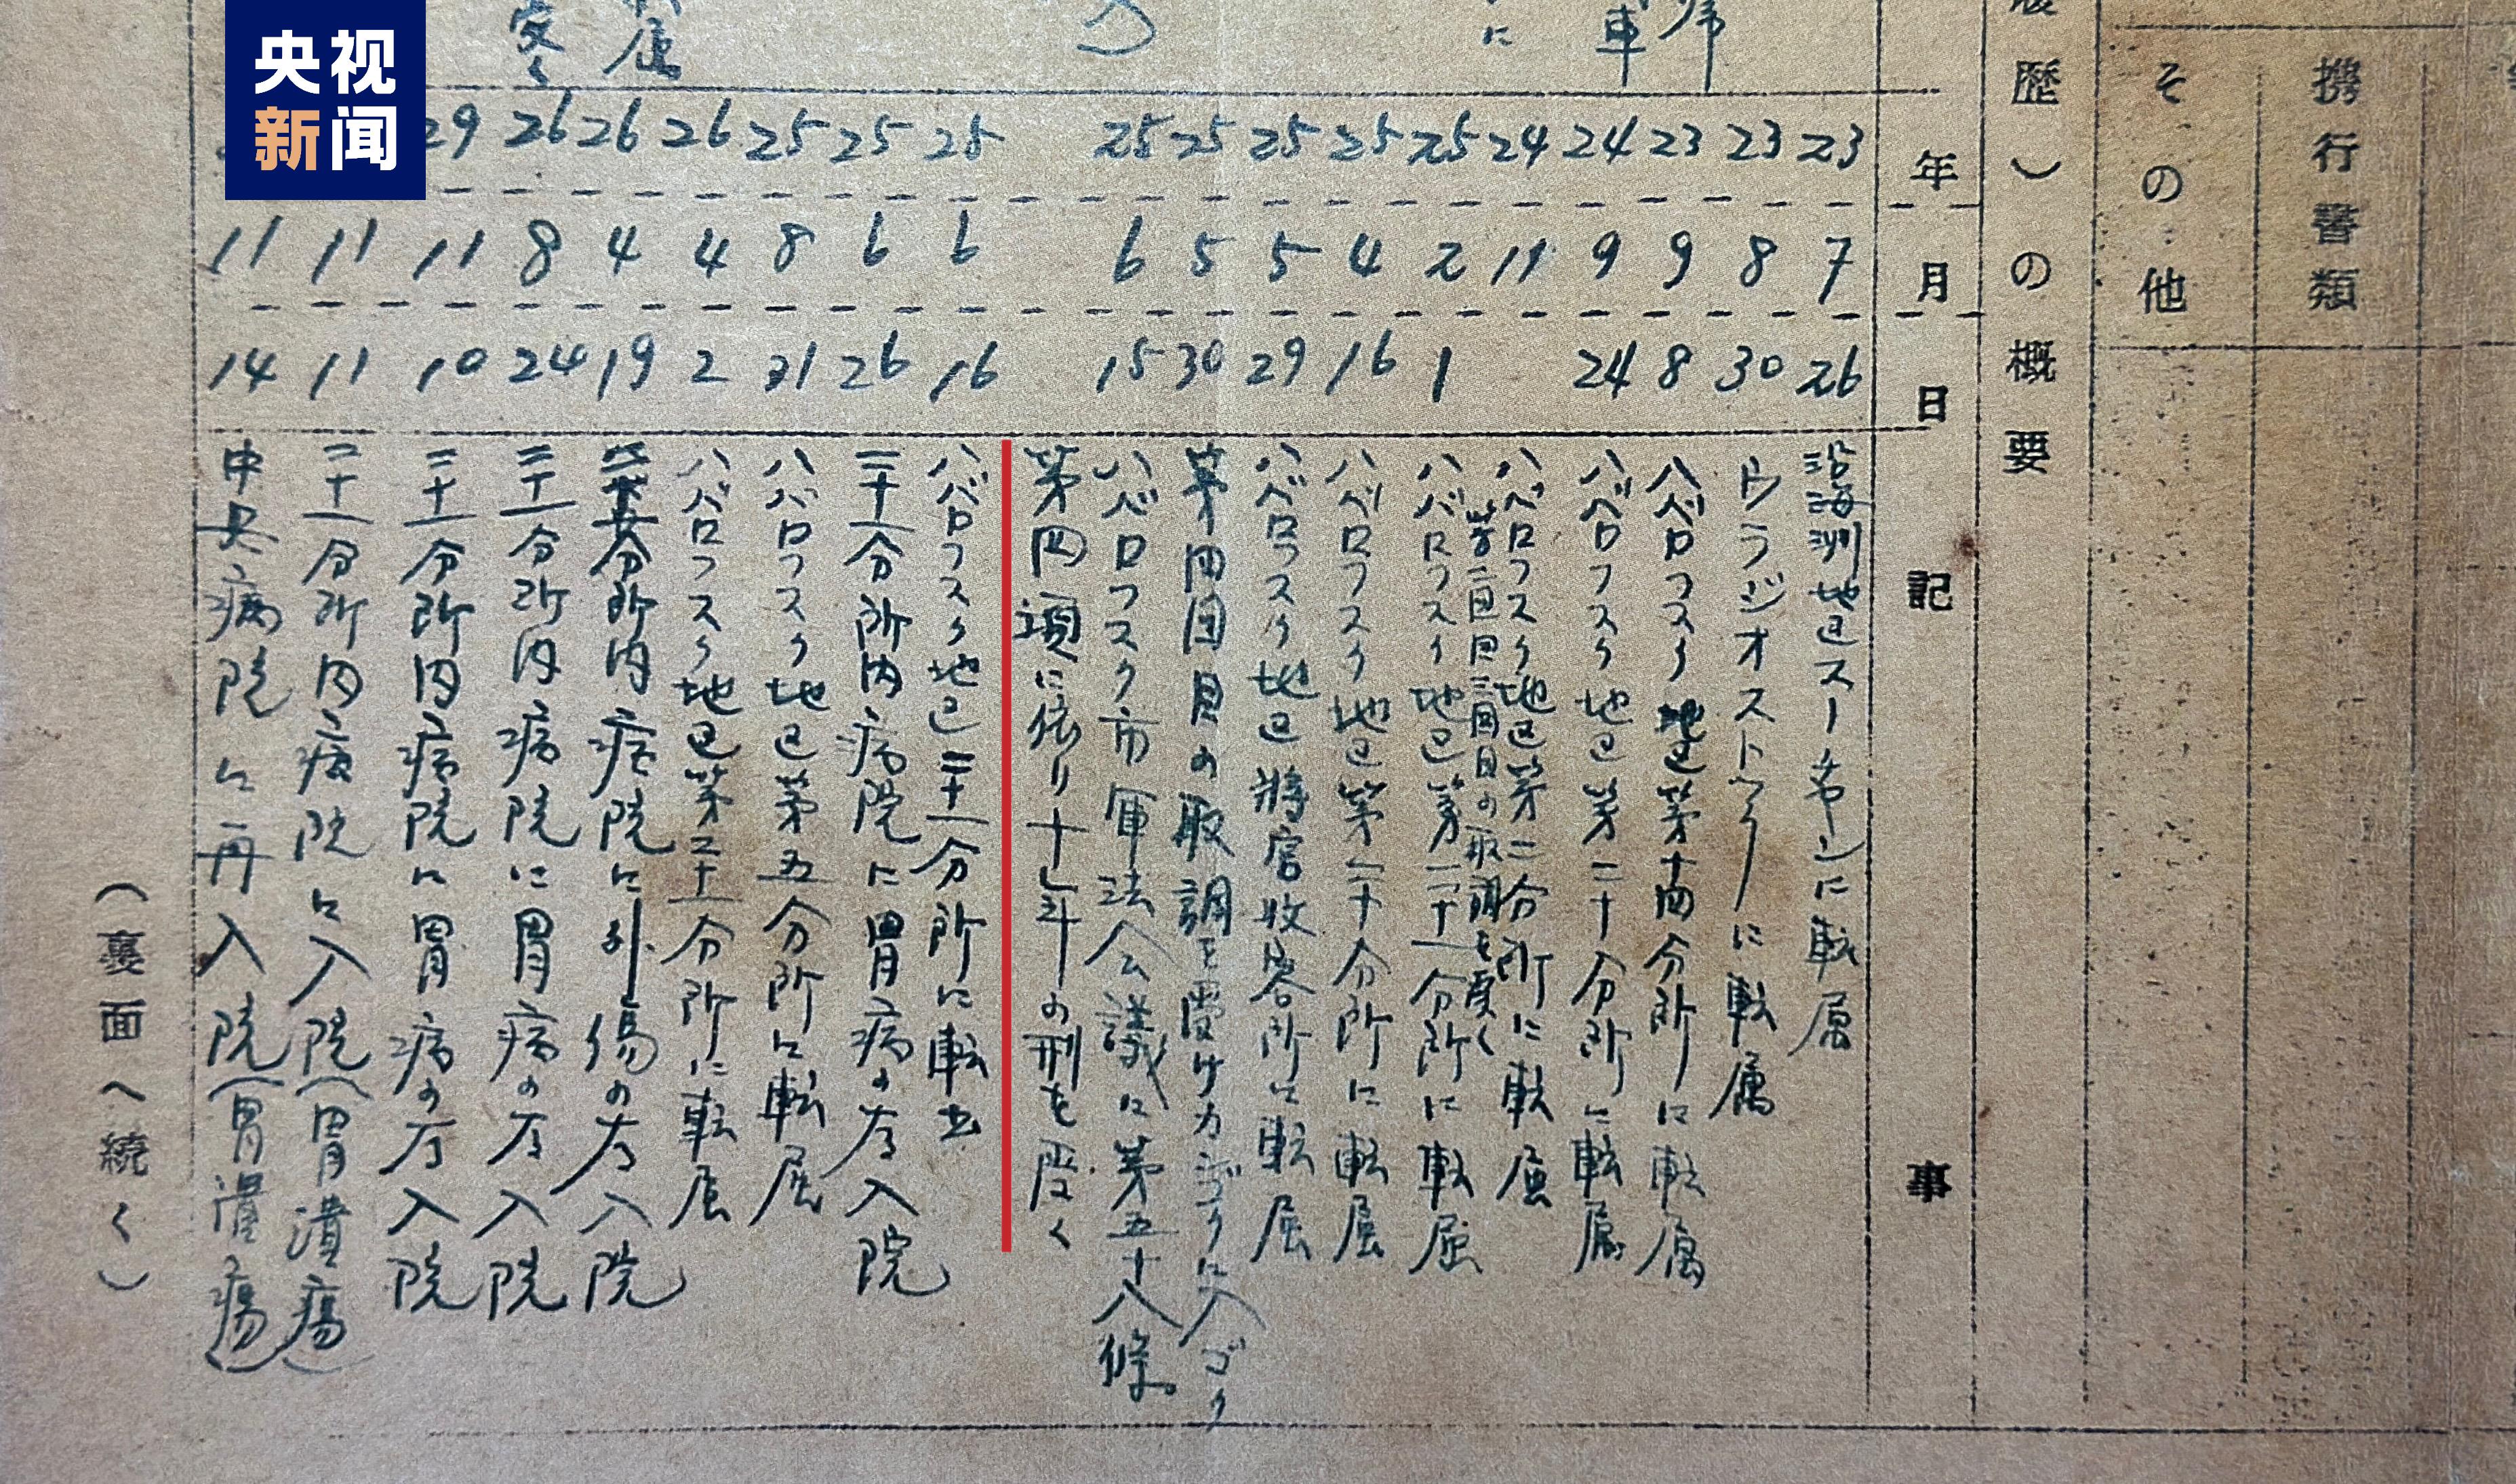 央视
新闻
携行書類
その他
歴)の概要
年月日 記事
23 7 26 沿海州地区スーチャンに転属
23 8 30 ウラジオストックに転属
23 9 8 ハバロフスク地区第十四分所に転属
24 9 24 ハバロフスク地区第二十分所に転属
24 11 ハバロフスク地区第二分所に転属
第二回三回目の取調を受く
25 2 1 ハバロフスク地区第二十一分所に転属
25 4 16 ハバロフスク地区第二十分所に転属
25 5 29 ハバロフスク地区将官收容所に転属
25 5 30 第四回目の取調を受けカゴクに入ゴク
25 6 15 ハバロフスク市軍法会議に第五十八條
第四項に依り十年の刑を受く
25 6 16 ハバロフスク地区二十一分所に転出
25 6 26 二十一分所内病院に胃病の為入院
25 8 31 ハバロフスク地区第五分所に転属
26 4 2 ハバロフスク地区第二十一分所に転属
26 4 19 分所内病院に外傷の為入院
26 8 24 二十一分所内病院に胃病の為入院
29 11 10 二十一分所内病院に胃病の為入院
11 11 二十一分所内病院に入院(胃潰瘍)
11 14 中央病院に再入院(胃潰瘍)
(裏面へ続く)